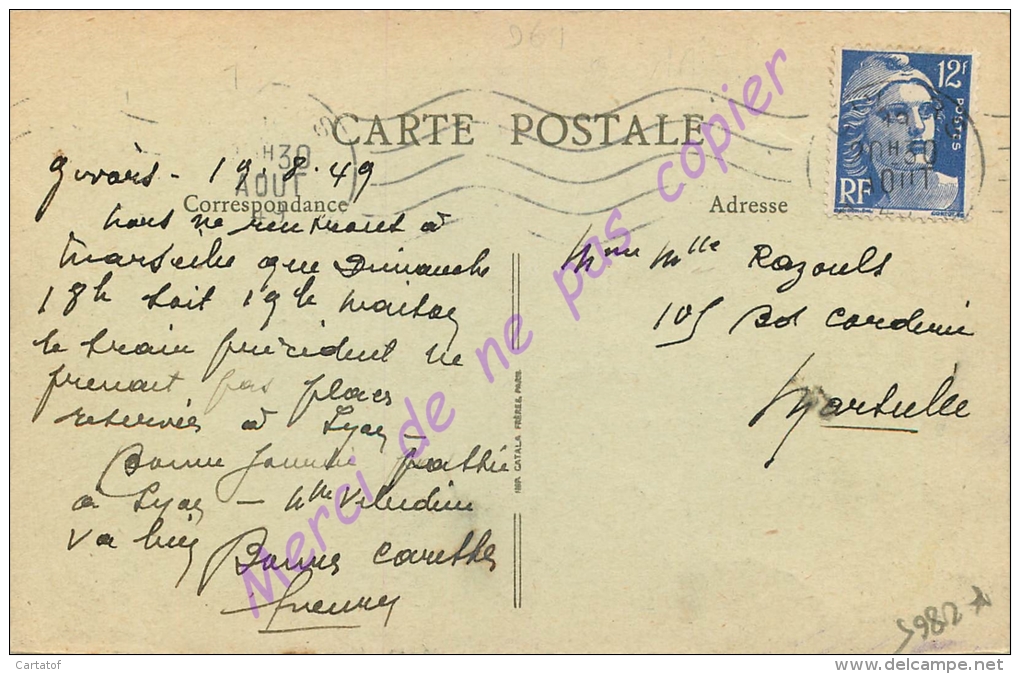 961
12F
POSTES
RF
CARTE POSTALE
20H30
AOUT
49
Givors - 19.8.49
Correspondance
Adresse
Nous ne rentrons à
Marseille que Dimanche
18h soit 19h maison
le train précédent ne
prenait pas places
réservées à Lyon -
Bonne journée passée
à Lyon - Mme
va bien
Bonnes caresses
Mme Mlle Razouls
105 Bd
Marseille
IMP. CATALA FRÈRES, PARIS
Merci de ne pas copier
Cartatof
www.delcampe.net